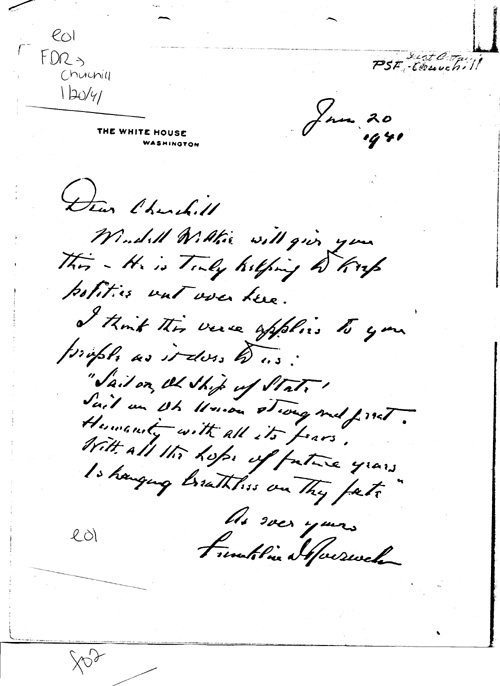 e01
FDR→
Churchill
1/20/41
PSF-Churchill
Jan 20
1941
THE WHITE HOUSE
WASHINGTON
Dear Churchill
Wendell Willkie will give you
this - He is truly helping to keep
politics out over here.
I think this verse applies to you
people as it does to us:
"Sail on, Oh Ship of State!
Sail on Oh Union strong and great.
Humanity with all its fears,
With all the hope of future years
Is hanging breathless on thy fate"
As ever yours
Franklin D Roosevelt
e01
f02